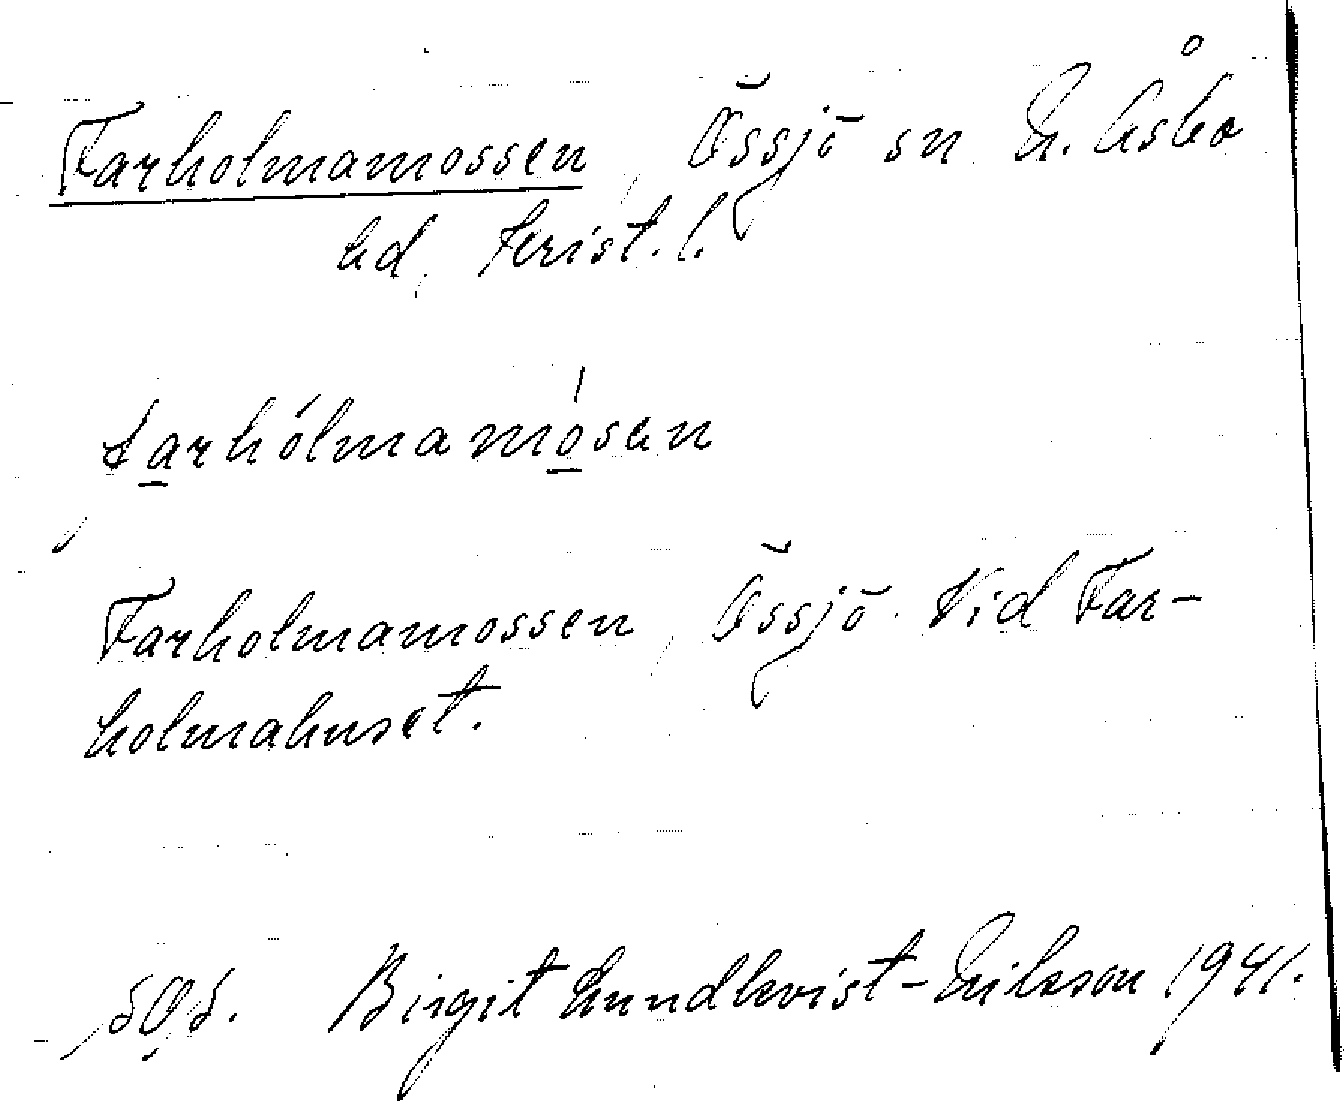 Farholmamossen, Össjö sn N. Åsbo
hd, Krist. l.
farhólmamósen
Farholmamossen, Össjö. Vid Far-
holmahuset.
Birgit Lundkvist-Nilsson 1941.